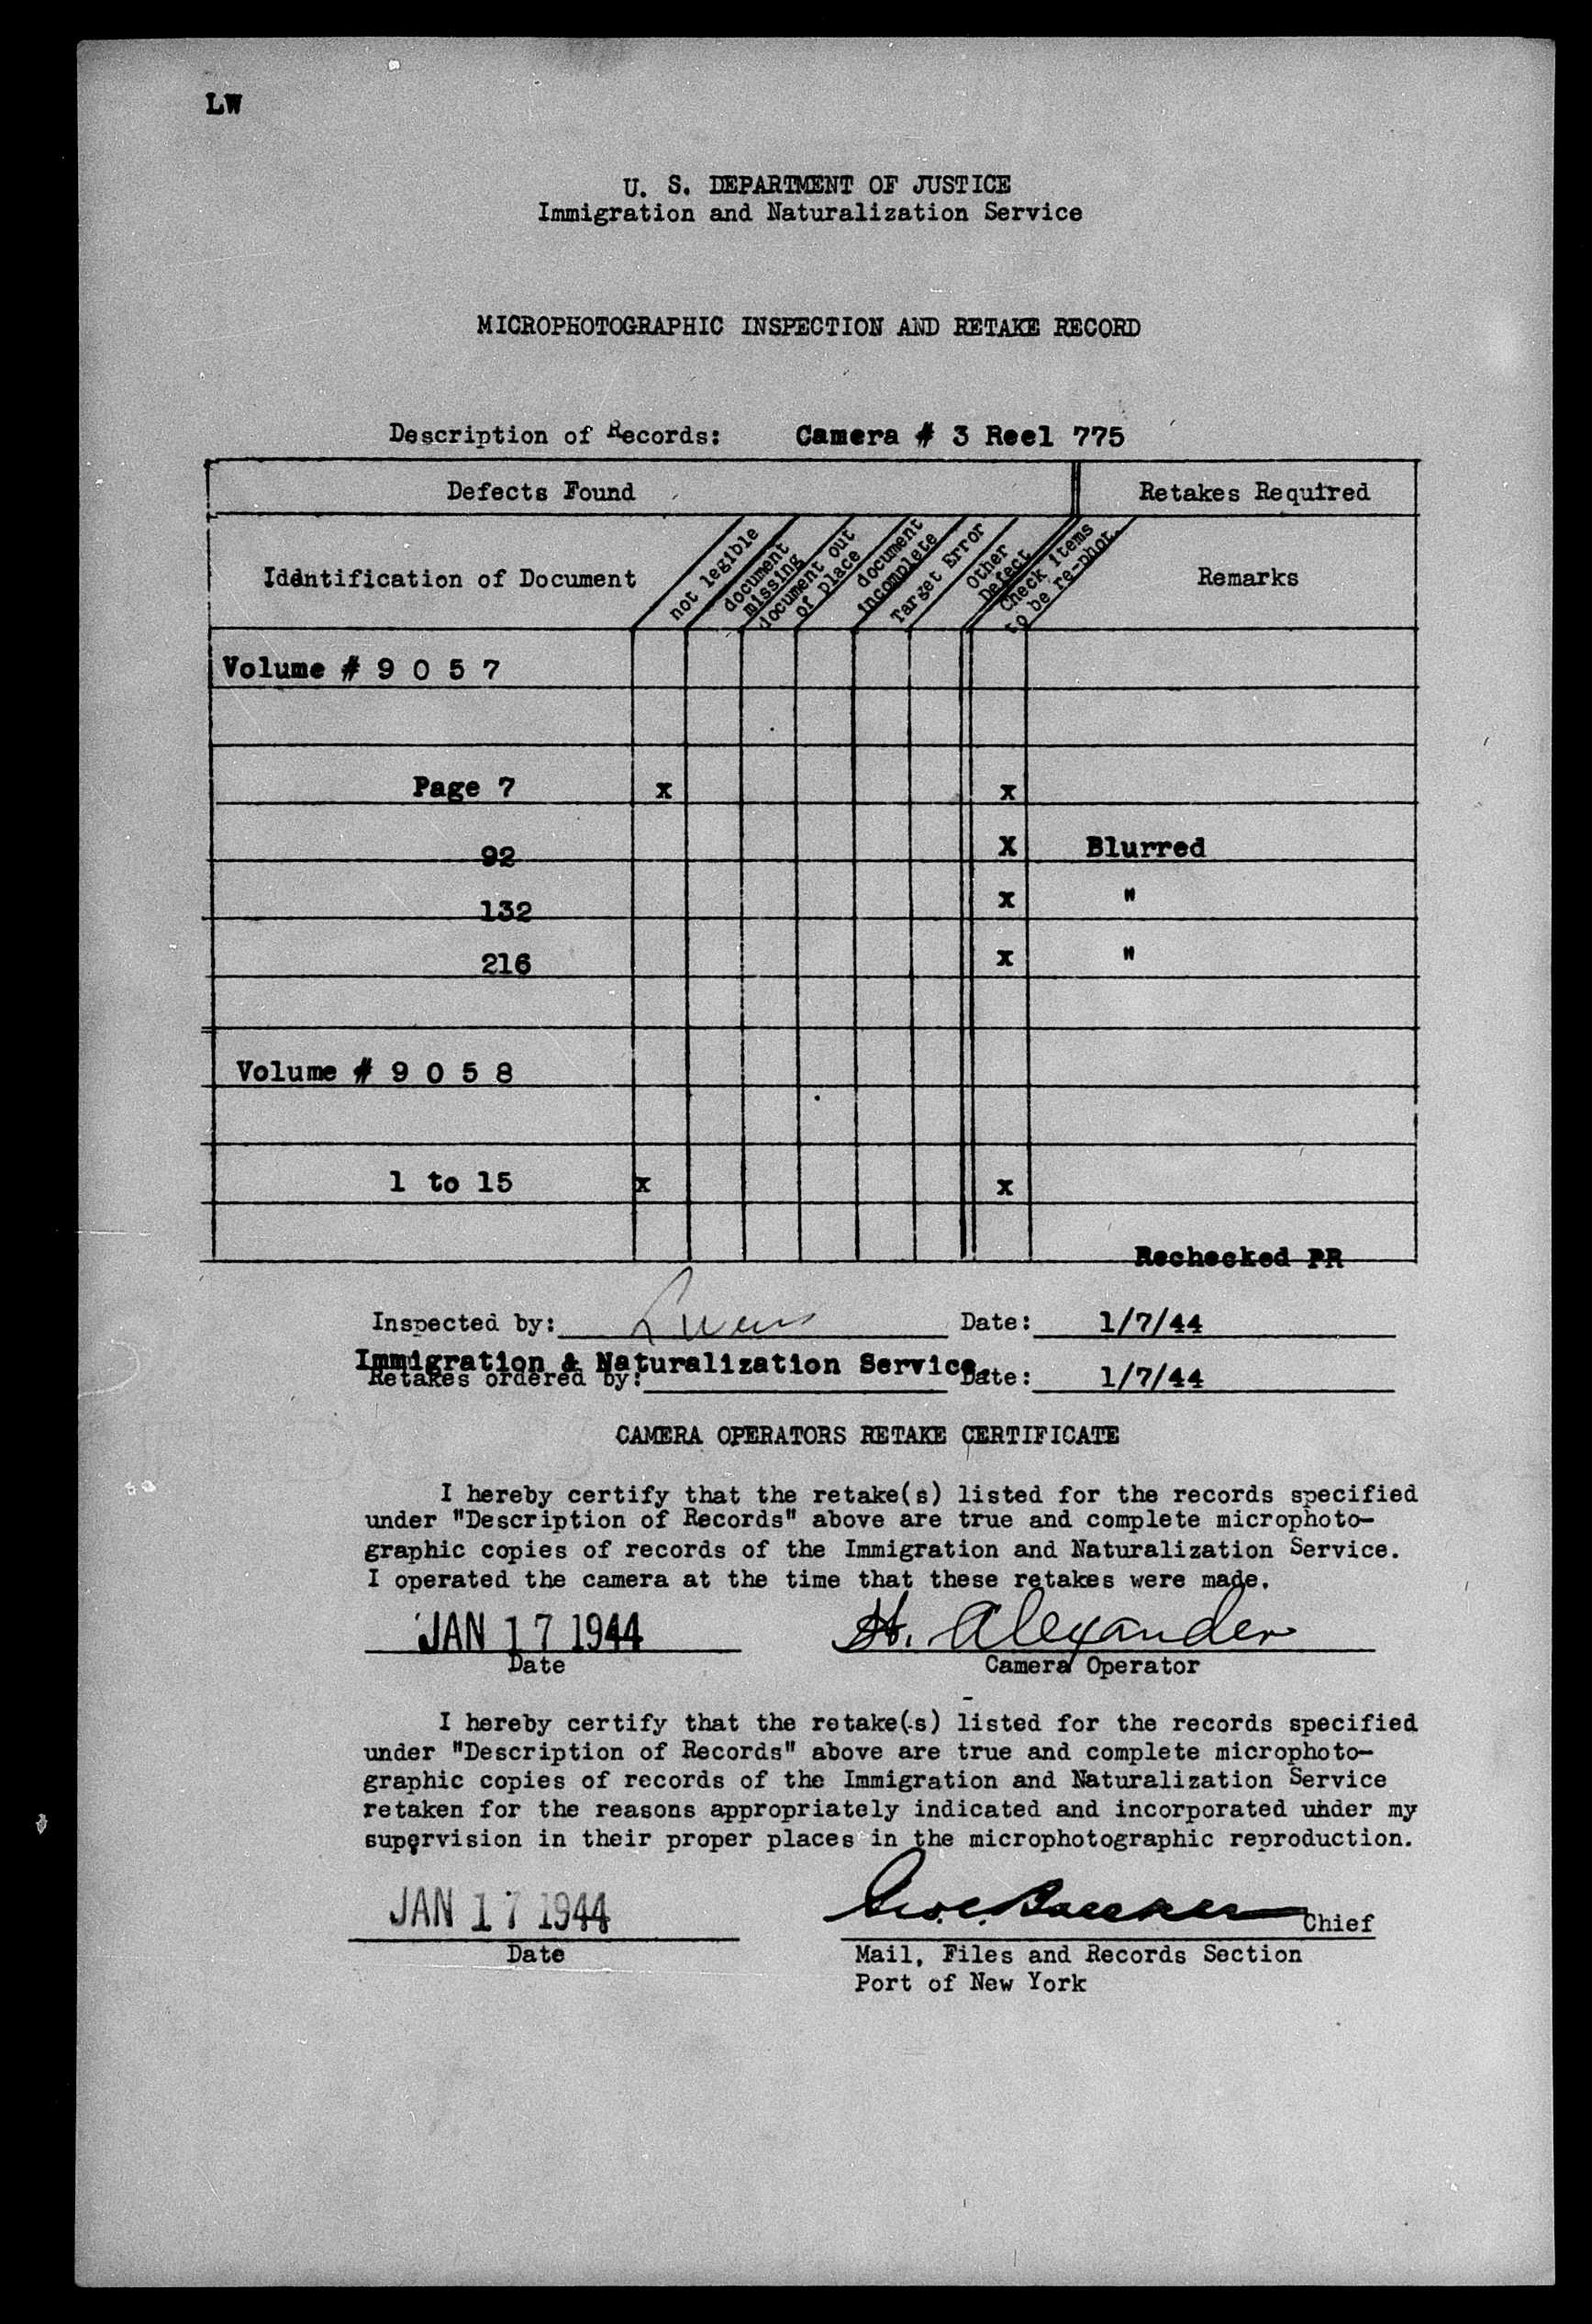 LW
U. S. DEPARTMENT OF JUSTICE
Immigration and Naturalization Service
MICROPHOTOGRAPHIC INSPECTION AND RETAKE RECORD
Description of Records: Camera # 3 Reel 775
Defects Found Retakes Required
Identification of Document not legible document missing document out of place document incomplete Target Error Other Defect Check items to be re-phot. Remarks
Volume # 9 0 5 7
Page 7 x x
92 X Blurred
132 x "
216 x "
Volume # 9 0 5 8
1 to 15 x x
Rechecked PR
Inspected by: Date: 1/7/44
Immigration & Naturalization Service
Retakes ordered by: Date: 1/7/44
CAMERA OPERATORS RETAKE CERTIFICATE
I hereby certify that the retake(s) listed for the records specified
under "Description of Records" above are true and complete microphoto-
graphic copies of records of the Immigration and Naturalization Service.
I operated the camera at the time that these retakes were made.
JAN 17 1944 H. Alexander
Date Camera Operator
I hereby certify that the retake(s) listed for the records specified
under "Description of Records" above are true and complete microphoto-
graphic copies of records of the Immigration and Naturalization Service
retaken for the reasons appropriately indicated and incorporated under my
supervision in their proper places in the microphotographic reproduction.
JAN 17 1944 Chief
Date Mail, Files and Records Section
Port of New York